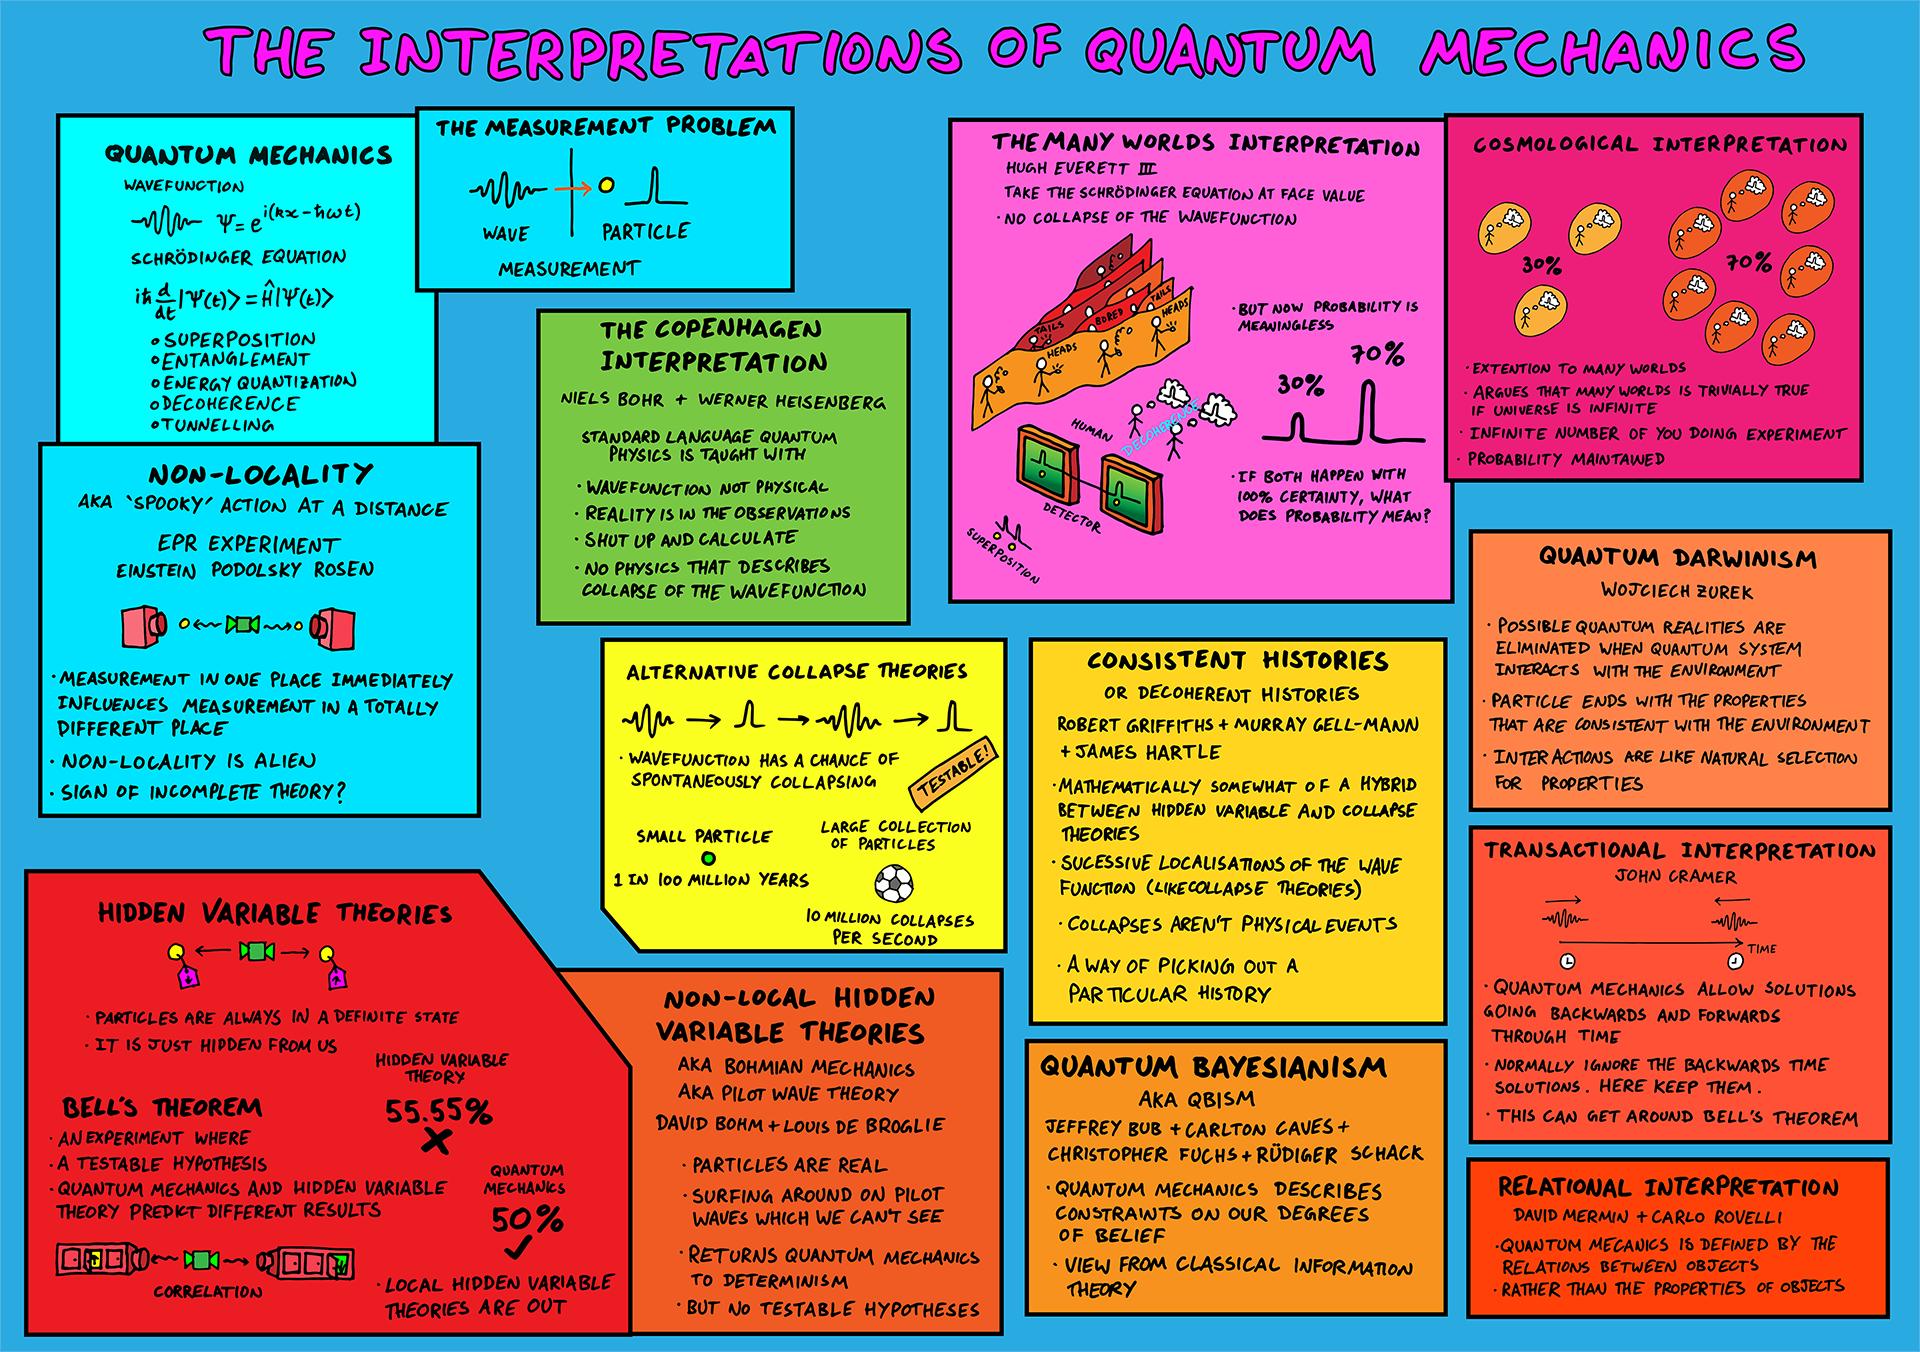 THE INTERPRETATIONS OF QUANTUM MECHANICS
QUANTUM MECHANICS
WAVEFUNCTION
Ψ = e^i(kx - ħωt)
SCHRÖDINGER EQUATION
iħ d/dt |Ψ(t)> = Ĥ|Ψ(t)>
• SUPERPOSITION
• ENTANGLEMENT
• ENERGY QUANTIZATION
• DECOHERENCE
• TUNNELLING
THE MEASUREMENT PROBLEM
WAVE
PARTICLE
MEASUREMENT
NON-LOCALITY
AKA 'SPOOKY' ACTION AT A DISTANCE
EPR EXPERIMENT
EINSTEIN PODOLSKY ROSEN
• MEASUREMENT IN ONE PLACE IMMEDIATELY
INFLUENCES MEASUREMENT IN A TOTALLY
DIFFERENT PLACE
• NON-LOCALITY IS ALIEN
• SIGN OF INCOMPLETE THEORY?
THE COPENHAGEN
INTERPRETATION
NIELS BOHR + WERNER HEISENBERG
STANDARD LANGUAGE QUANTUM
PHYSICS IS TAUGHT WITH
• WAVEFUNCTION NOT PHYSICAL
• REALITY IS IN THE OBSERVATIONS
• SHUT UP AND CALCULATE
• NO PHYSICS THAT DESCRIBES
COLLAPSE OF THE WAVEFUNCTION
THE MANY WORLDS INTERPRETATION
HUGH EVERETT III
TAKE THE SCHRÖDINGER EQUATION AT FACE VALUE
• NO COLLAPSE OF THE WAVEFUNCTION
TAILS
HEADS
TAILS
BORED
HEADS
• BUT NOW PROBABILITY IS
MEANINGLESS
30%
70%
HUMAN
DECOHERENCE
DETECTOR
SUPERPOSITION
• IF BOTH HAPPEN WITH
100% CERTAINTY, WHAT
DOES PROBABILITY MEAN?
COSMOLOGICAL INTERPRETATION
30%
70%
• EXTENTION TO MANY WORLDS
• ARGUES THAT MANY WORLDS IS TRIVIALLY TRUE
IF UNIVERSE IS INFINITE
• INFINITE NUMBER OF YOU DOING EXPERIMENT
• PROBABILITY MAINTAINED
ALTERNATIVE COLLAPSE THEORIES
• WAVEFUNCTION HAS A CHANCE OF
SPONTANEOUSLY COLLAPSING
TESTABLE!
SMALL PARTICLE
1 IN 100 MILLION YEARS
LARGE COLLECTION
OF PARTICLES
10 MILLION COLLAPSES
PER SECOND
CONSISTENT HISTORIES
OR DECOHERENT HISTORIES
ROBERT GRIFFITHS + MURRAY GELL-MANN
+ JAMES HARTLE
• MATHEMATICALLY SOMEWHAT OF A HYBRID
BETWEEN HIDDEN VARIABLE AND COLLAPSE
THEORIES
• SUCESSIVE LOCALISATIONS OF THE WAVE
FUNCTION (LIKE COLLAPSE THEORIES)
• COLLAPSES AREN'T PHYSICAL EVENTS
• A WAY OF PICKING OUT A
PARTICULAR HISTORY
QUANTUM DARWINISM
WOJCIECH ZUREK
• POSSIBLE QUANTUM REALITIES ARE
ELIMINATED WHEN QUANTUM SYSTEM
INTERACTS WITH THE ENVIRONMENT
• PARTICLE ENDS WITH THE PROPERTIES
THAT ARE CONSISTENT WITH THE ENVIRONMENT
• INTERACTIONS ARE LIKE NATURAL SELECTION
FOR PROPERTIES
HIDDEN VARIABLE THEORIES
• PARTICLES ARE ALWAYS IN A DEFINITE STATE
• IT IS JUST HIDDEN FROM US
HIDDEN VARIABLE
THEORY
55.55%
BELL'S THEOREM
• AN EXPERIMENT WHERE
• A TESTABLE HYPOTHESIS
• QUANTUM MECHANICS AND HIDDEN VARIABLE
THEORY PREDICT DIFFERENT RESULTS
QUANTUM
MECHANICS
50%
CORRELATION
• LOCAL HIDDEN VARIABLE
THEORIES ARE OUT
NON-LOCAL HIDDEN
VARIABLE THEORIES
AKA BOHMIAN MECHANICS
AKA PILOT WAVE THEORY
DAVID BOHM + LOUIS DE BROGLIE
• PARTICLES ARE REAL
• SURFING AROUND ON PILOT
WAVES WHICH WE CAN'T SEE
• RETURNS QUANTUM MECHANICS
TO DETERMINISM
• BUT NO TESTABLE HYPOTHESES
QUANTUM BAYESIANISM
AKA QBISM
JEFFREY BUB + CARLTON CAVES +
CHRISTOPHER FUCHS + RÜDIGER SCHACK
• QUANTUM MECHANICS DESCRIBES
CONSTRAINTS ON OUR DEGREES
OF BELIEF
• VIEW FROM CLASSICAL INFORMATION
THEORY
TRANSACTIONAL INTERPRETATION
JOHN CRAMER
TIME
• QUANTUM MECHANICS ALLOW SOLUTIONS
GOING BACKWARDS AND FORWARDS
THROUGH TIME
• NORMALLY IGNORE THE BACKWARDS TIME
SOLUTIONS. HERE KEEP THEM.
• THIS CAN GET AROUND BELL'S THEOREM
RELATIONAL INTERPRETATION
DAVID MERMIN + CARLO ROVELLI
• QUANTUM MECANICS IS DEFINED BY THE
RELATIONS BETWEEN OBJECTS
• RATHER THAN THE PROPERTIES OF OBJECTS